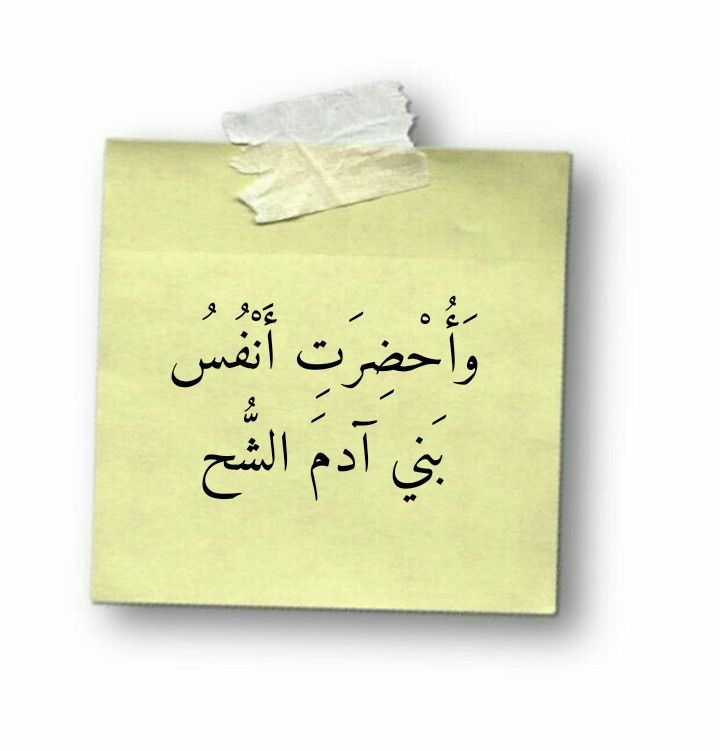 وَأُحْضِرَتِ أَنْفُسُ
بَني آدمَ الشُّح